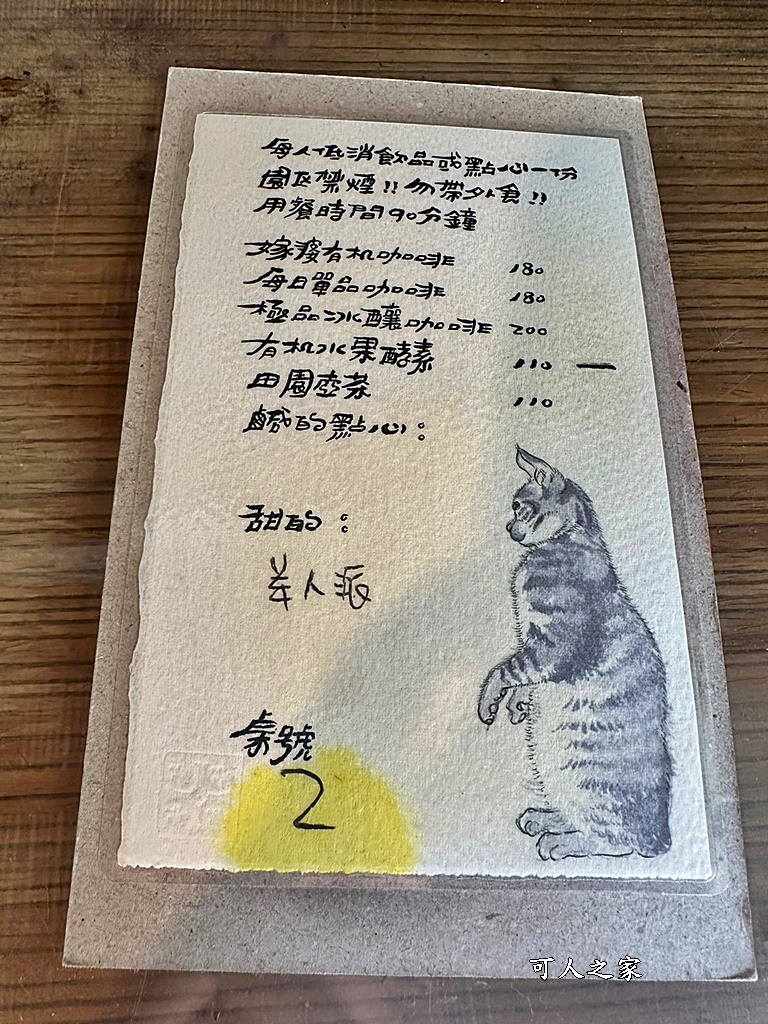 每人低消飲品或點心一份
園區禁煙!! 勿帶外食!!
用餐時間90分鐘
嫁婆有机咖啡 180
每日單品咖啡 180
極品冰釀咖啡 200
有机水果酵素 110 一
田園壺茶 110
鹹的點心：
甜的：
羊人派
桌號
2
可人之家